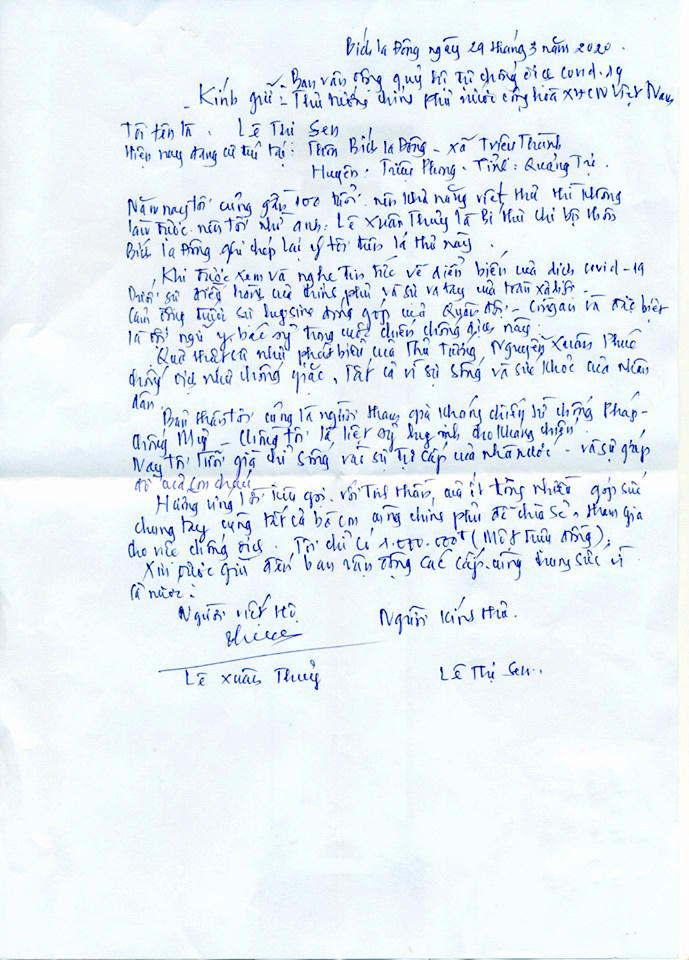 Bích la Đông ngày 29 tháng 3 năm 2020.
Ban vận động quỹ hỗ trợ chống dịch covid-19
- Kính gửi: Thủ tướng chính phủ nước cộng hòa XHCN Việt Nam
Tôi tên là. Lê Thị Sen
Hiện nay đang cư trú tại: Thôn Bích la Đông - xã Triệu Thành
Huyện: Triệu Phong - Tỉnh: Quảng Trị.
Năm nay tôi cũng gần 100 tuổi. nên khả năng viết thư thì không
làm được. nên tôi nhờ anh: Lê Xuân Thủy là Bí thư chi bộ thôn
Bích la Đông ghi chép lại ý tôi lá thư này.
Khi được xem và nghe tin tức về diễn biến của dịch covid-19
Dưới sự điều hành của chính phủ và sự ra tay của toàn xã hội.
Cảm động trước sự hy sinh đóng góp của Quân đội - công an và đặc biệt
là đội ngũ y, bác sỹ trong cuộc chiến chống dịch này.
Quả thật là như phát biểu của Thủ tướng Nguyễn Xuân Phúc
chống dịch như chống giặc, Tất cả vì sự sống và sức khỏe của nhân
dân.
Bản thân tôi cũng là người tham gia kháng chiến sử chống Pháp -
chống Mỹ - chồng tôi là liệt sỹ hy sinh cho kháng chiến.
Nay tôi tuổi già chỉ sống vào sự trợ cấp của nhà nước - và sự giúp
đỡ của con cháu.
Hưởng ứng lời kêu gọi. với tinh thần, của ít lòng nhiều góp sức
chung tay cùng tất cả bà con cùng chính phủ để chia sẻ, tham gia
cho việc chống dịch. Tôi chỉ có 1.000.000đ (Một triệu đồng).
Xin được gửi đến ban vận động các cấp. cùng chung sức vì
cả nước.
Người viết hộ Người kính thư.
Lê Xuân Thủy Lê Thị Sen.